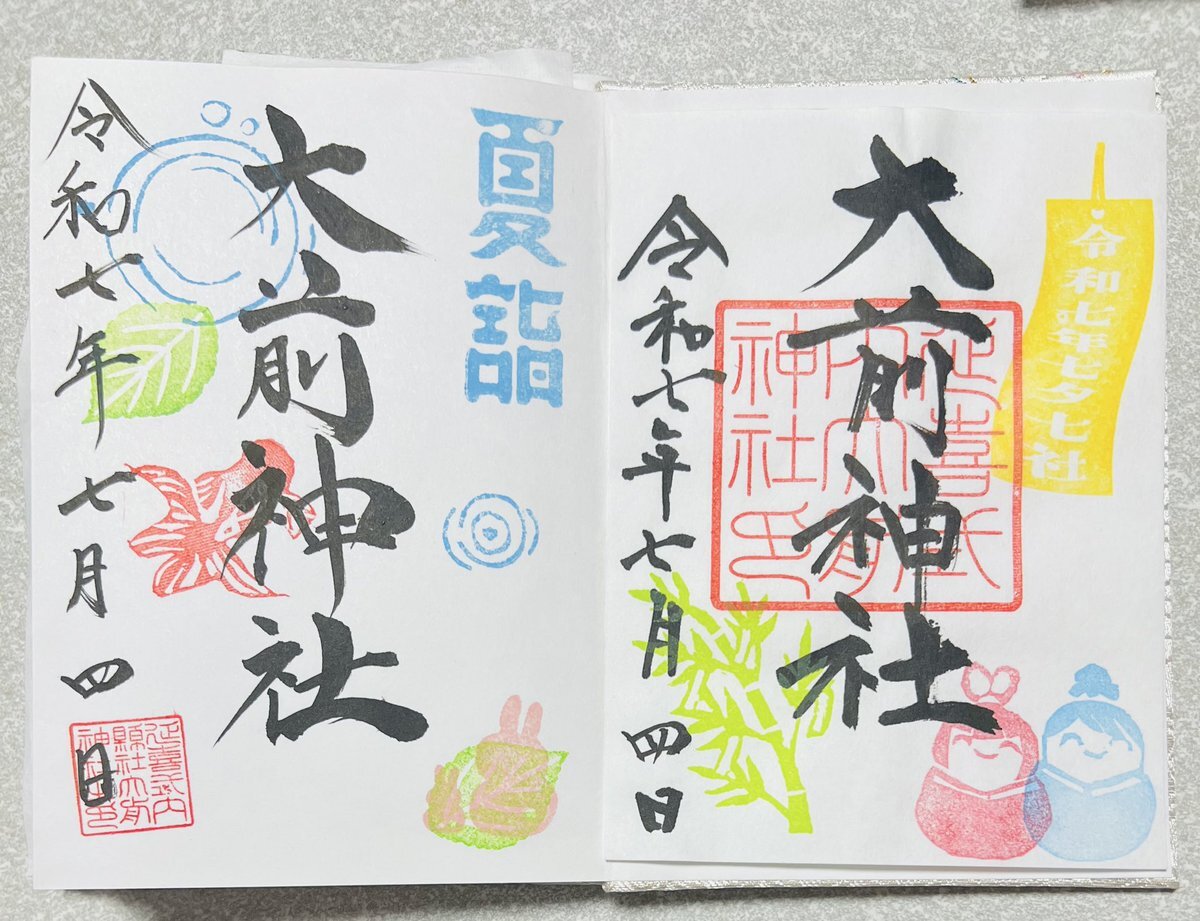 令和七年七夕七社
大前神社
延喜式
内大前
神社印
令和七年七月四日
夏詣
大前神社
令和七年七月四日
延喜式内
縣社大前